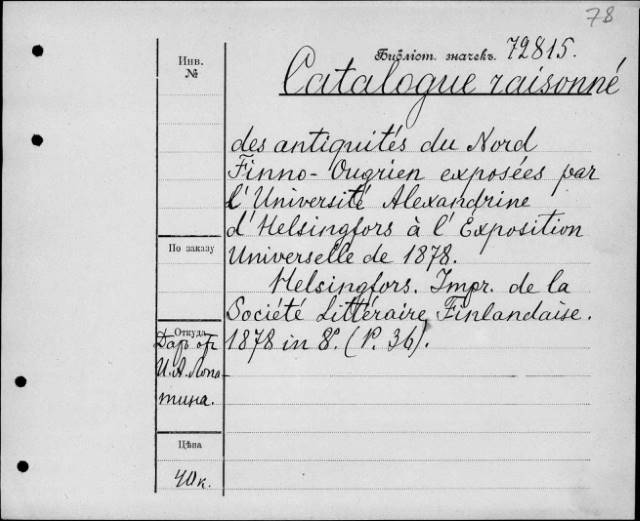 78
Инв. №
Библіот. значекъ. 72815.
Catalogue raisonné
des antiquités du Nord
Finno-Ougrien exposées par
l'Université Alexandrine
d'Helsingfors à l'Exposition
По заказу
Universelle de 1878.
Helsingfors. Impr. de la
Société Littéraire Finlandaise.
1878 in 8º. (P. 36).
Откуда
Даръ отъ
И. А. Лопа-
тина.
Цѣна
40 к.